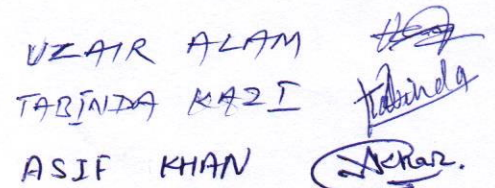 UZAIR ALAM
TABINDA KAZI Tabinda
ASIF KHAN AKhan.